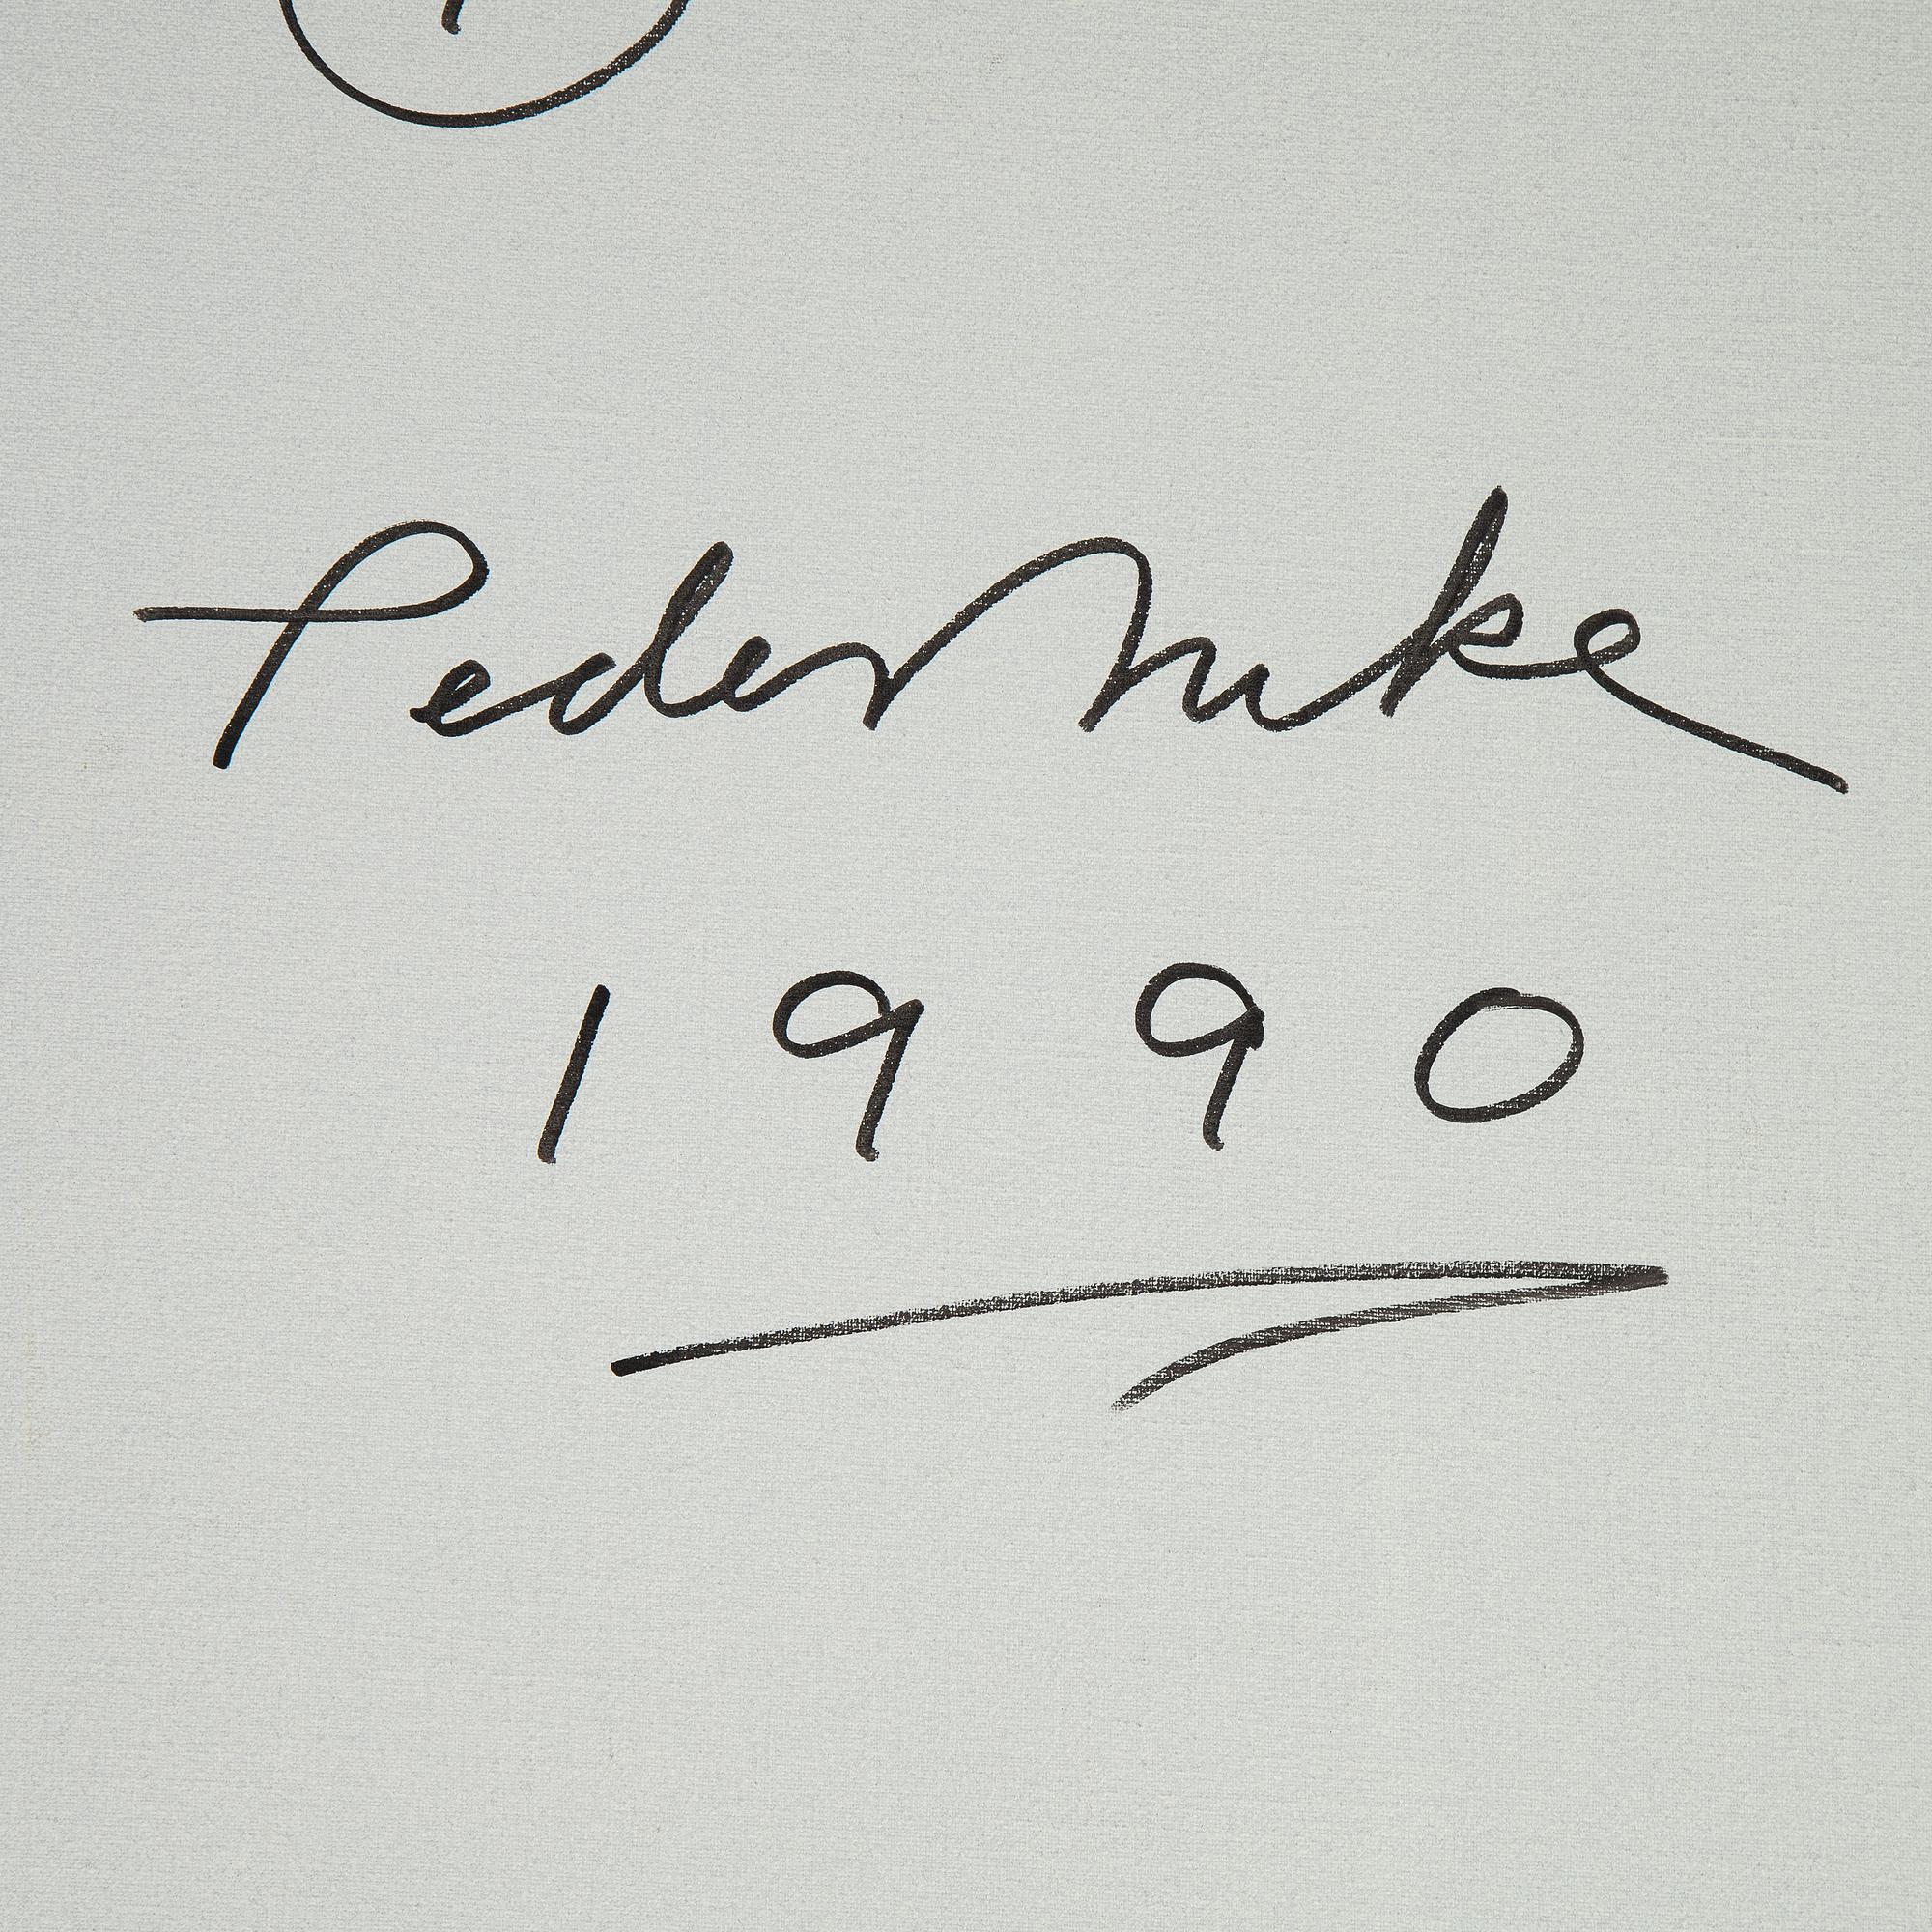 Peder Duke
1990